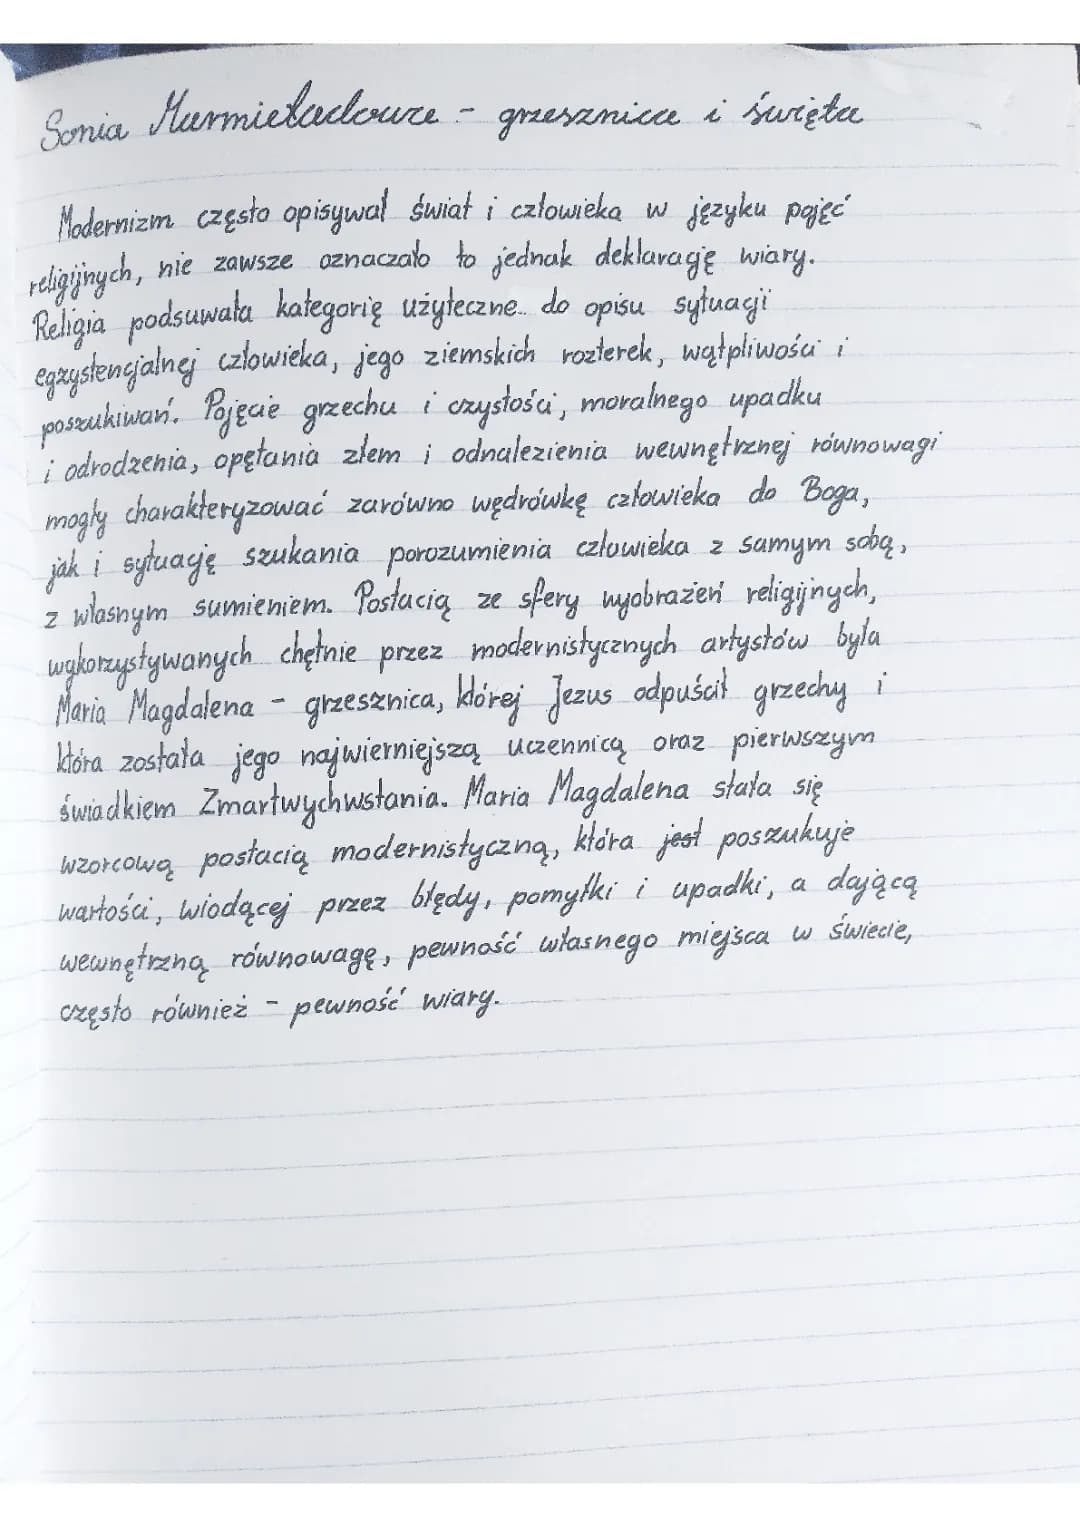 Sonia Marmieładowa - grzesznica i święta
Modernizm często opisywał świat i człowieka w języku pojęć
religijnych, nie zawsze oznaczało to jednak deklarację wiary.
Religia podsuwała kategorię użyteczne do opisu sytuacji
egzystencjalnej człowieka, jego ziemskich rozterek, wątpliwości i
poszukiwań. Pojęcie grzechu i czystości, moralnego upadku
i odrodzenia, opętania złem i odnalezienia wewnętrznej równowagi
mogły charakteryzować zarówno wędrówkę człowieka do Boga,
jak i sytuację szukania porozumienia człowieka z samym sobą,
z własnym sumieniem. Postacią ze sfery wyobrażeń religijnych,
wykorzystywanych chętnie przez modernistycznych artystów była
Maria Magdalena - grzesznica, której Jezus odpuścił grzechy i
która została jego najwierniejszą uczennicą oraz pierwszym
świadkiem Zmartwychwstania. Maria Magdalena stała się
wzorcową postacią modernistyczną, która jest poszukuje
wartości, wiodącej przez błędy, pomyłki i upadki, a dającą
wewnętrzną równowagę, pewność własnego miejsca w świecie,
często również - pewność wiary.